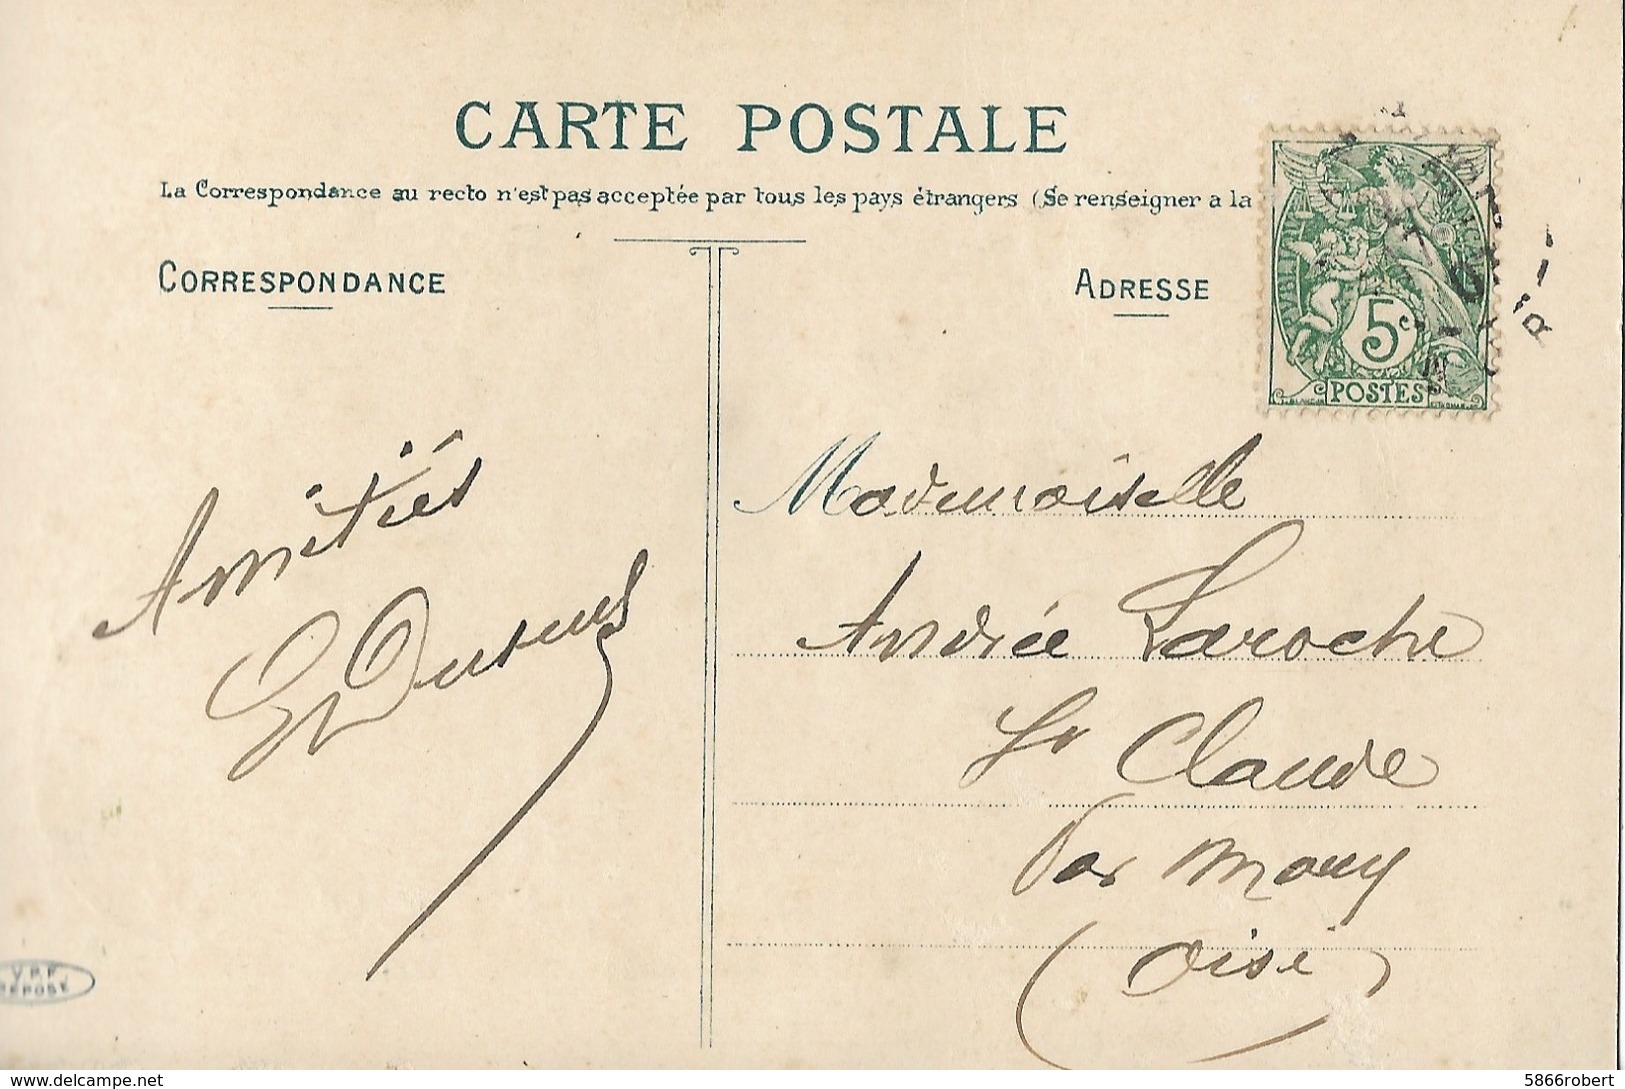 CARTE POSTALE
La Correspondance au recto n'est pas acceptée par tous les pays étrangers (Se renseigner a la
CORRESPONDANCE
ADRESSE
5c
POSTES
Amitiés
Mademoiselle
Andrée Laroche
St Claude
Par Mouy
(Oise)
DEPOSE
delcampe.net
5866robert